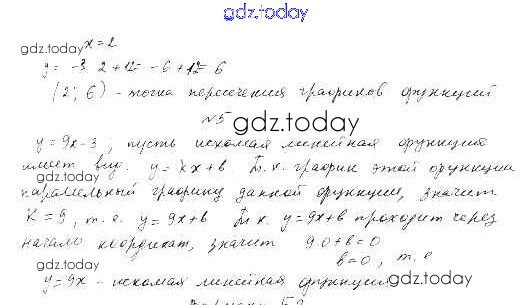 gdz.today
gdz.today x=2
y= -3·2+12= -6+12= 6
(2; 6) - точка пересечения графиков функций
№5
gdz.today
y=9x-3; пусть искомая линейная функция
имеет вид y=kx+b. Т.к. график этой функции
параллельный графику данной функции, значит
k=9, т.е. y=9x+b Т.к. y=9x+b проходит через
начало координат, значит 9·0+b=0
gdz.today b=0, т.е
y=9x - искомая линейная функция gdz.today